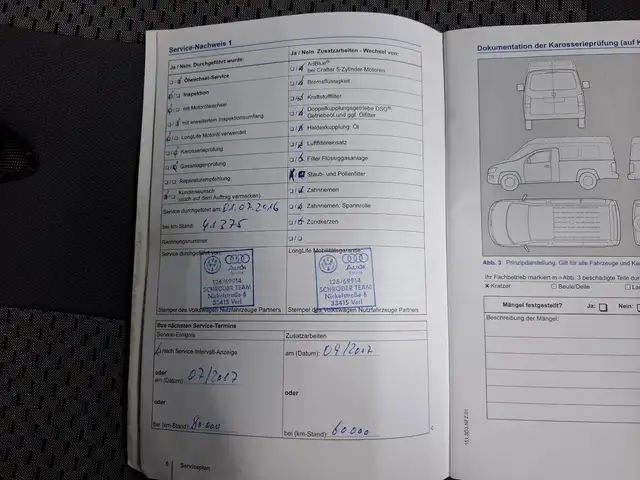 Service-Nachweis 1
Ja / Nein Durchgeführt wurde:
Ölwechsel-Service
Inspektion
mit Motorölwechsel
mit erweitertem Inspektionsumfang
LongLife Motoröl verwendet
Karosserieprüfung
Gasanlagenprüfung
Reparaturempfehlung
Kundenwunsch
(auch auf dem Auftrag vermerken)
Service durchgeführt am: 01.07.2016
bei km-Stand: 41375
Rechnungsnummer:
Service durchgeführt
126/69914
SCHRÖDER TEAM
Nickelstraße 6
33415 Verl
Stempel des Volkswagen Nutzfahrzeuge Partners
Ja / Nein Zusatzarbeiten - Wechsel von:
AdBlue®
bei Crafter 5-Zylinder-Motoren
Bremsflüssigkeit
Kraftstofffilter
Doppelkupplungsgetriebe DSG®:
Getriebeöl und ggf. Ölfilter
Haldexkupplung: Öl
Luftfiltereinsatz
Filter Flüssiggasanlage
Staub- und Pollenfilter
Zahnriemen
Zahnriemen: Spannrolle
Zündkerzen
LongLife Mobilitätsgarantie:
126/69914
SCHRÖDER TEAM
Nickelstraße 6
33415 Verl
Stempel des Volkswagen Nutzfahrzeuge Partners
Ihre nächsten Service-Termine
Service-Ereignis
nach Service-Intervall-Anzeige
oder
am (Datum): 07/2017
oder
bei (km-Stand): 80000
Zusatzarbeiten
am (Datum): 04/2017
oder
bei (km-Stand): 60000
8 Serviceplan
Dokumentation der Karosserieprüfung (auf
Abb. 3 Prinzipdarstellung. Gilt für alle Fahrzeuge und
Ihr Fachbetrieb markiert in Abb. 3 beschädigte Teile
Kratzer Beule/Delle
Mängel festgestellt? Ja: Nein:
Beschreibung der Mängel: